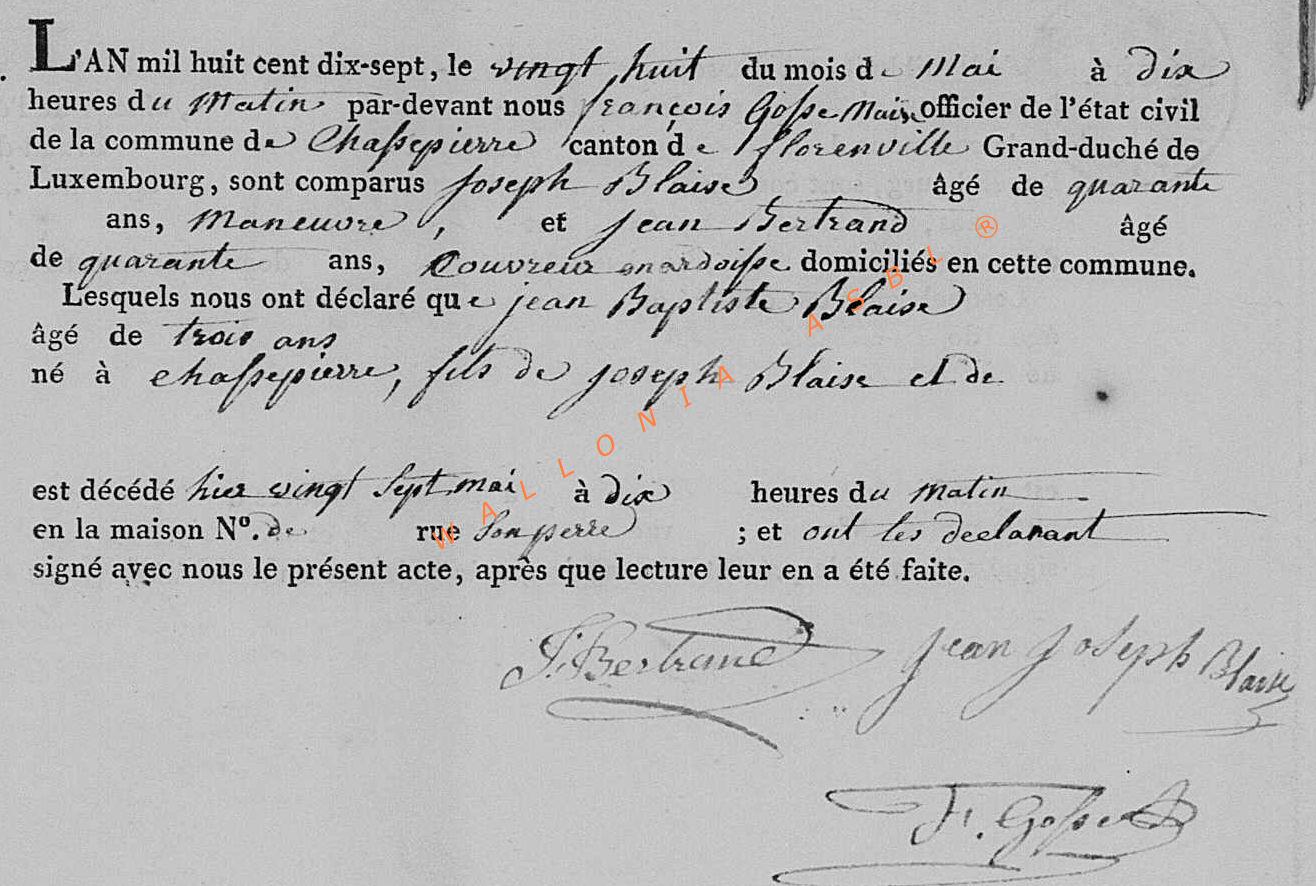 L'AN mil huit cent dix-sept, le vingt huit du mois de Mai à dix
heures du Matin par-devant nous françois Gosse Maire officier de l'état civil
de la commune de Chassepierre canton de florenville Grand-duché de
Luxembourg, sont comparus Joseph Blaise âgé de quarante
ans, Maneuvre, et jean Bertrand âgé
de quarante ans, Couvreur en ardoisse domiciliés en cette commune.
Lesquels nous ont déclaré que jean Baptiste Blaise
âgé de trois ans
né à chassepierre, fils de joseph Blaise et de
est décédé hier vingt sept mai à dix heures du matin
en la maison Nº. de rue Son perre ; et ont les declarant
signé avec nous le présent acte, après que lecture leur en a été faite.
J. Bertrand jean joseph Blaise
F. Gosse
WALLONIA ASBL ®